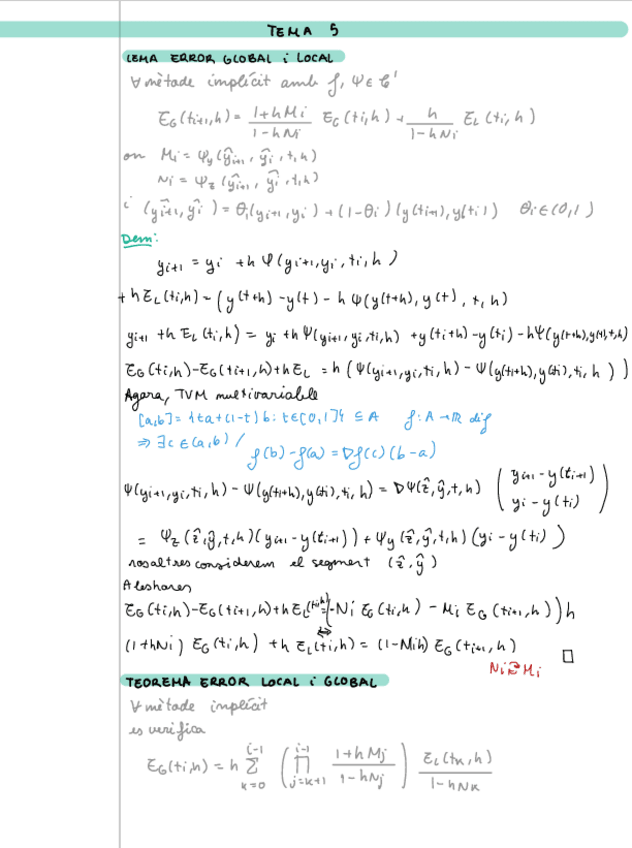 TEMA 5
LEMA ERROR GLOBAL i LOCAL
∀ mètode implícit amb f, Ψ ∈ C¹
E_G(t_{i+1},h) = \frac{1+hM_i}{1-hN_i} E_G(t_i,h) + \frac{h}{1-hN_i} E_L(t_i,h)
on M_i = Ψ_y(ŷ_{i+1}, ŷ_i, t_i, h)
N_i = Ψ_z(ŷ_{i+1}, ŷ_i, t_i, h)
i (ŷ_{i+1}, ŷ_i) = θ_i(y_{i+1}, y_i) + (1-θ_i)(y(t_{i+1}), y(t_i)) θ_i ∈ (0,1)
Dem:
y_{i+1} = y_i + h Ψ(y_{i+1}, y_i, t_i, h)
+ h E_L(t_i,h) = (y(t+h) - y(t) - h Ψ(y(t+h), y(t), t, h)
y_{i+1} + h E_L(t_i,h) = y_i + h Ψ(y_{i+1}, y_i, t_i, h) + y(t_i+h) - y(t_i) - hΨ(y(t+h), y(t), t, h)
E_G(t_i,h) - E_G(t_{i+1},h) + h E_L = h (Ψ(y_{i+1}, y_i, t_i, h) - Ψ(y(t_i+h), y(t_i), t_i, h))
Agara, TVM multivariable
[a,b] = {ta + (1-t)b : t ∈ [0,1]} ⊆ A f: A → ℝ dif
⇒ ∃c ∈ (a,b) /
f(b) - f(a) = ∇f(c)(b-a)
Ψ(y_{i+1}, y_i, t_i, h) - Ψ(y(t_i+h), y(t_i), t_i, h) = ∇Ψ(ẑ, ŷ, t, h) \begin{pmatrix} y_{i+1} - y(t_{i+1}) \\ y_i - y(t_i) \end{pmatrix}
= Ψ_z(ẑ, ŷ, t, h)(y_{i+1} - y(t_{i+1})) + Ψ_y(ẑ, ŷ, t, h)(y_i - y(t_i))
nosaltres considerem el segment (ẑ, ŷ)
Aleshores
E_G(t_i,h) - E_G(t_{i+1},h) + h E_L(t_i,h) = (-N_i E_G(t_i,h) - M_i E_G(t_{i+1},h)) h
⇔
(1+hN_i) E_G(t_i,h) + h E_L(t_i,h) = (1-M_i h) E_G(t_{i+1},h) □
N_i ⇄ M_i
TEOREMA ERROR LOCAL i GLOBAL
∀ mètode implícit
es verifica
E_G(t_i,h) = h \sum_{k=0}^{i-1} \left( \prod_{j=k+1}^{i-1} \frac{1+hM_j}{1-hN_j} \right) \frac{E_L(t_k,h)}{1-hN_k}